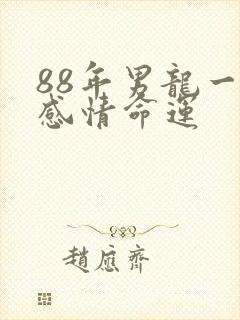 88年男龍一
感情命运
趙應齊